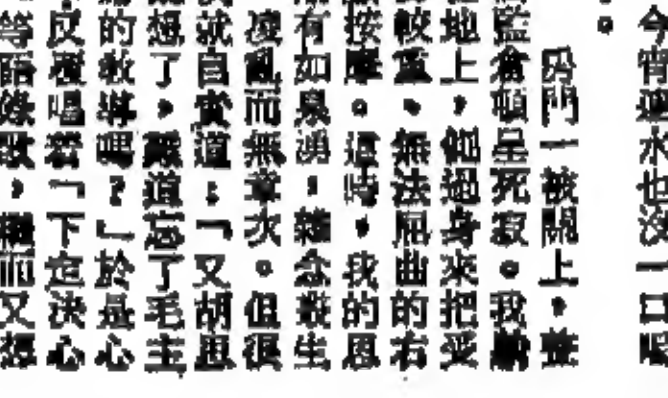 今宵連水也沒一口喝
。
房門一被關上，整
監倉頓呈死寂。我
地上，他過身來把受
較重、無法屈曲的右
按摩。這時，我的思
有如泉湧，雜念叢生
凌亂而無章次。但很
就自責道：「又胡思
想了，難道忘了毛主
的教導嗎？」於是心
反覆唱着「下定決心
等語錄歌，繼而又想